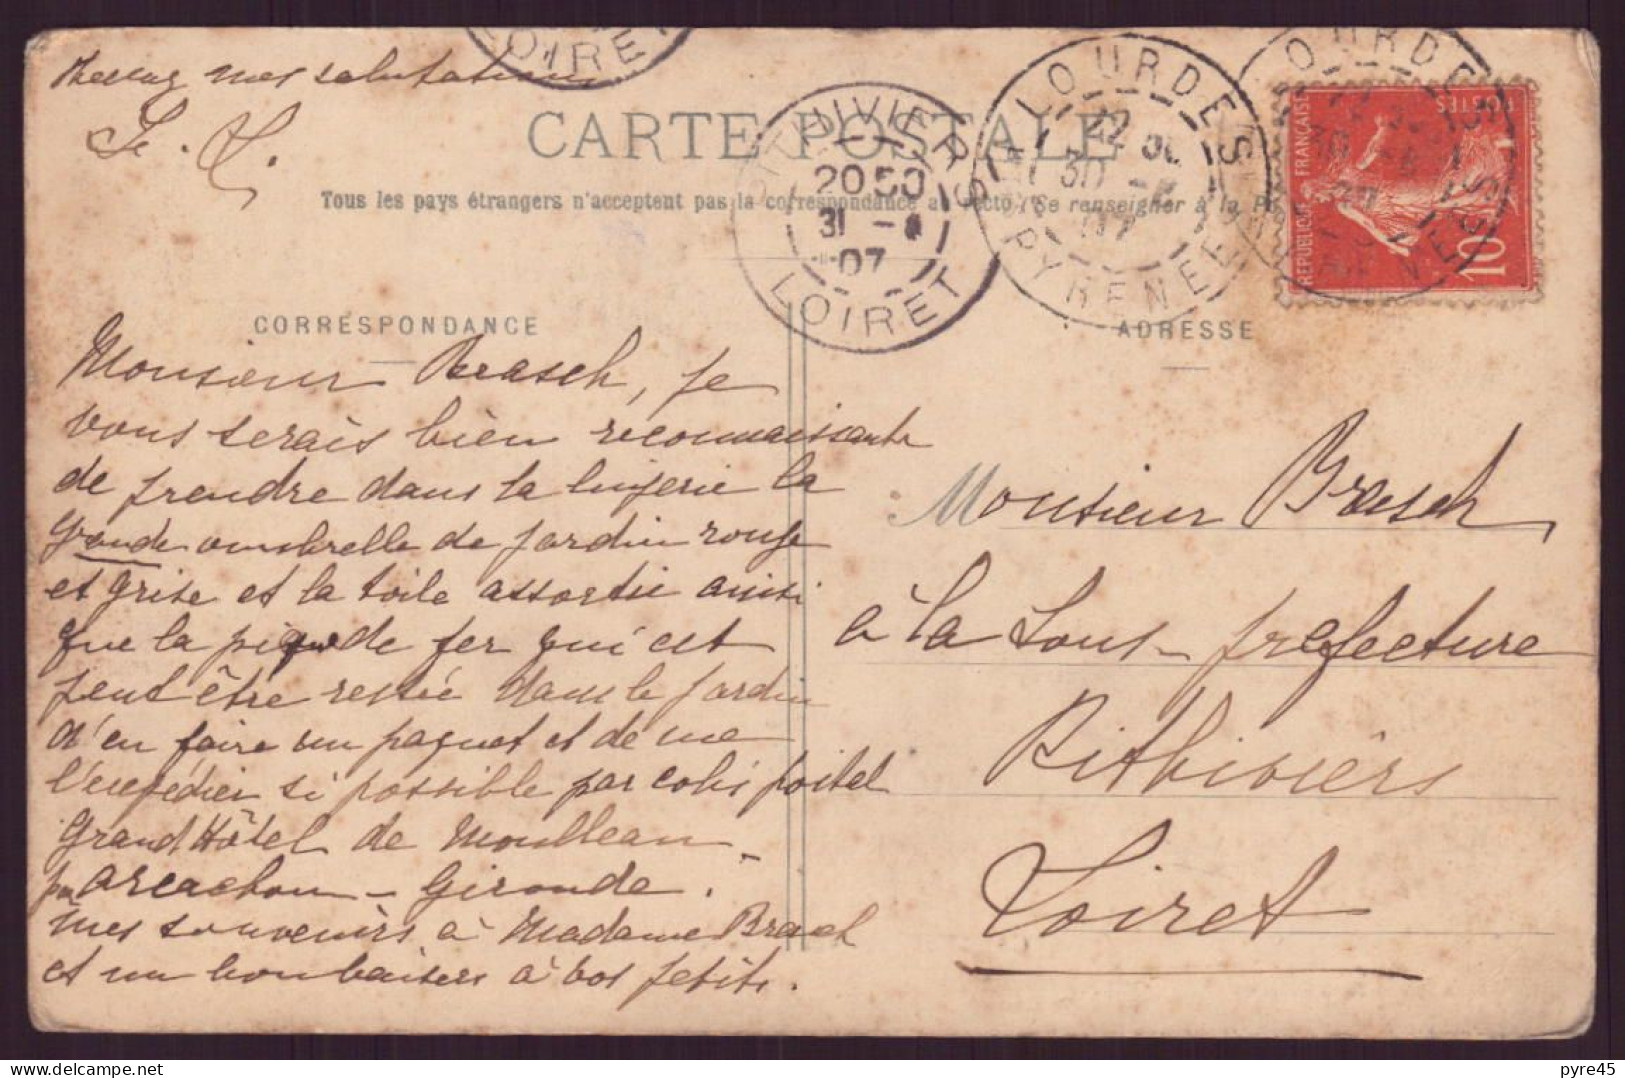 mes salutations
CARTE POSTALE
Tous les pays étrangers n'acceptent pas la correspondance au recto (Se renseigner à la P
LOIRET
PITHIVIERS
20 50
31 -8
07
LOIRET
LOURDES
12 30
30 -8
07
PYRENEES
LOURDES
PYRENEES
REPUBLIQUE FRANÇAISE
POSTES
10
CORRESPONDANCE
ADRESSE
Monsieur Brasch, je
vous serais bien reconnaissante
de prendre dans la lingerie la
grande ombrelle de jardin rouge
et grise et la toile assortie ainsi
que la pique de fer qui est
peut être restée dans le jardin
d'en faire un paquet et de me
l'expédier si possible par colis postal
Grand Hôtel de Moulleau
par Arcachon - Gironde.
mes souvenirs à Madame Brasch
et un bon baisers à vos petits.
Monsieur Brasch
à la Sous-préfecture
Pithiviers
Loiret
pyre45